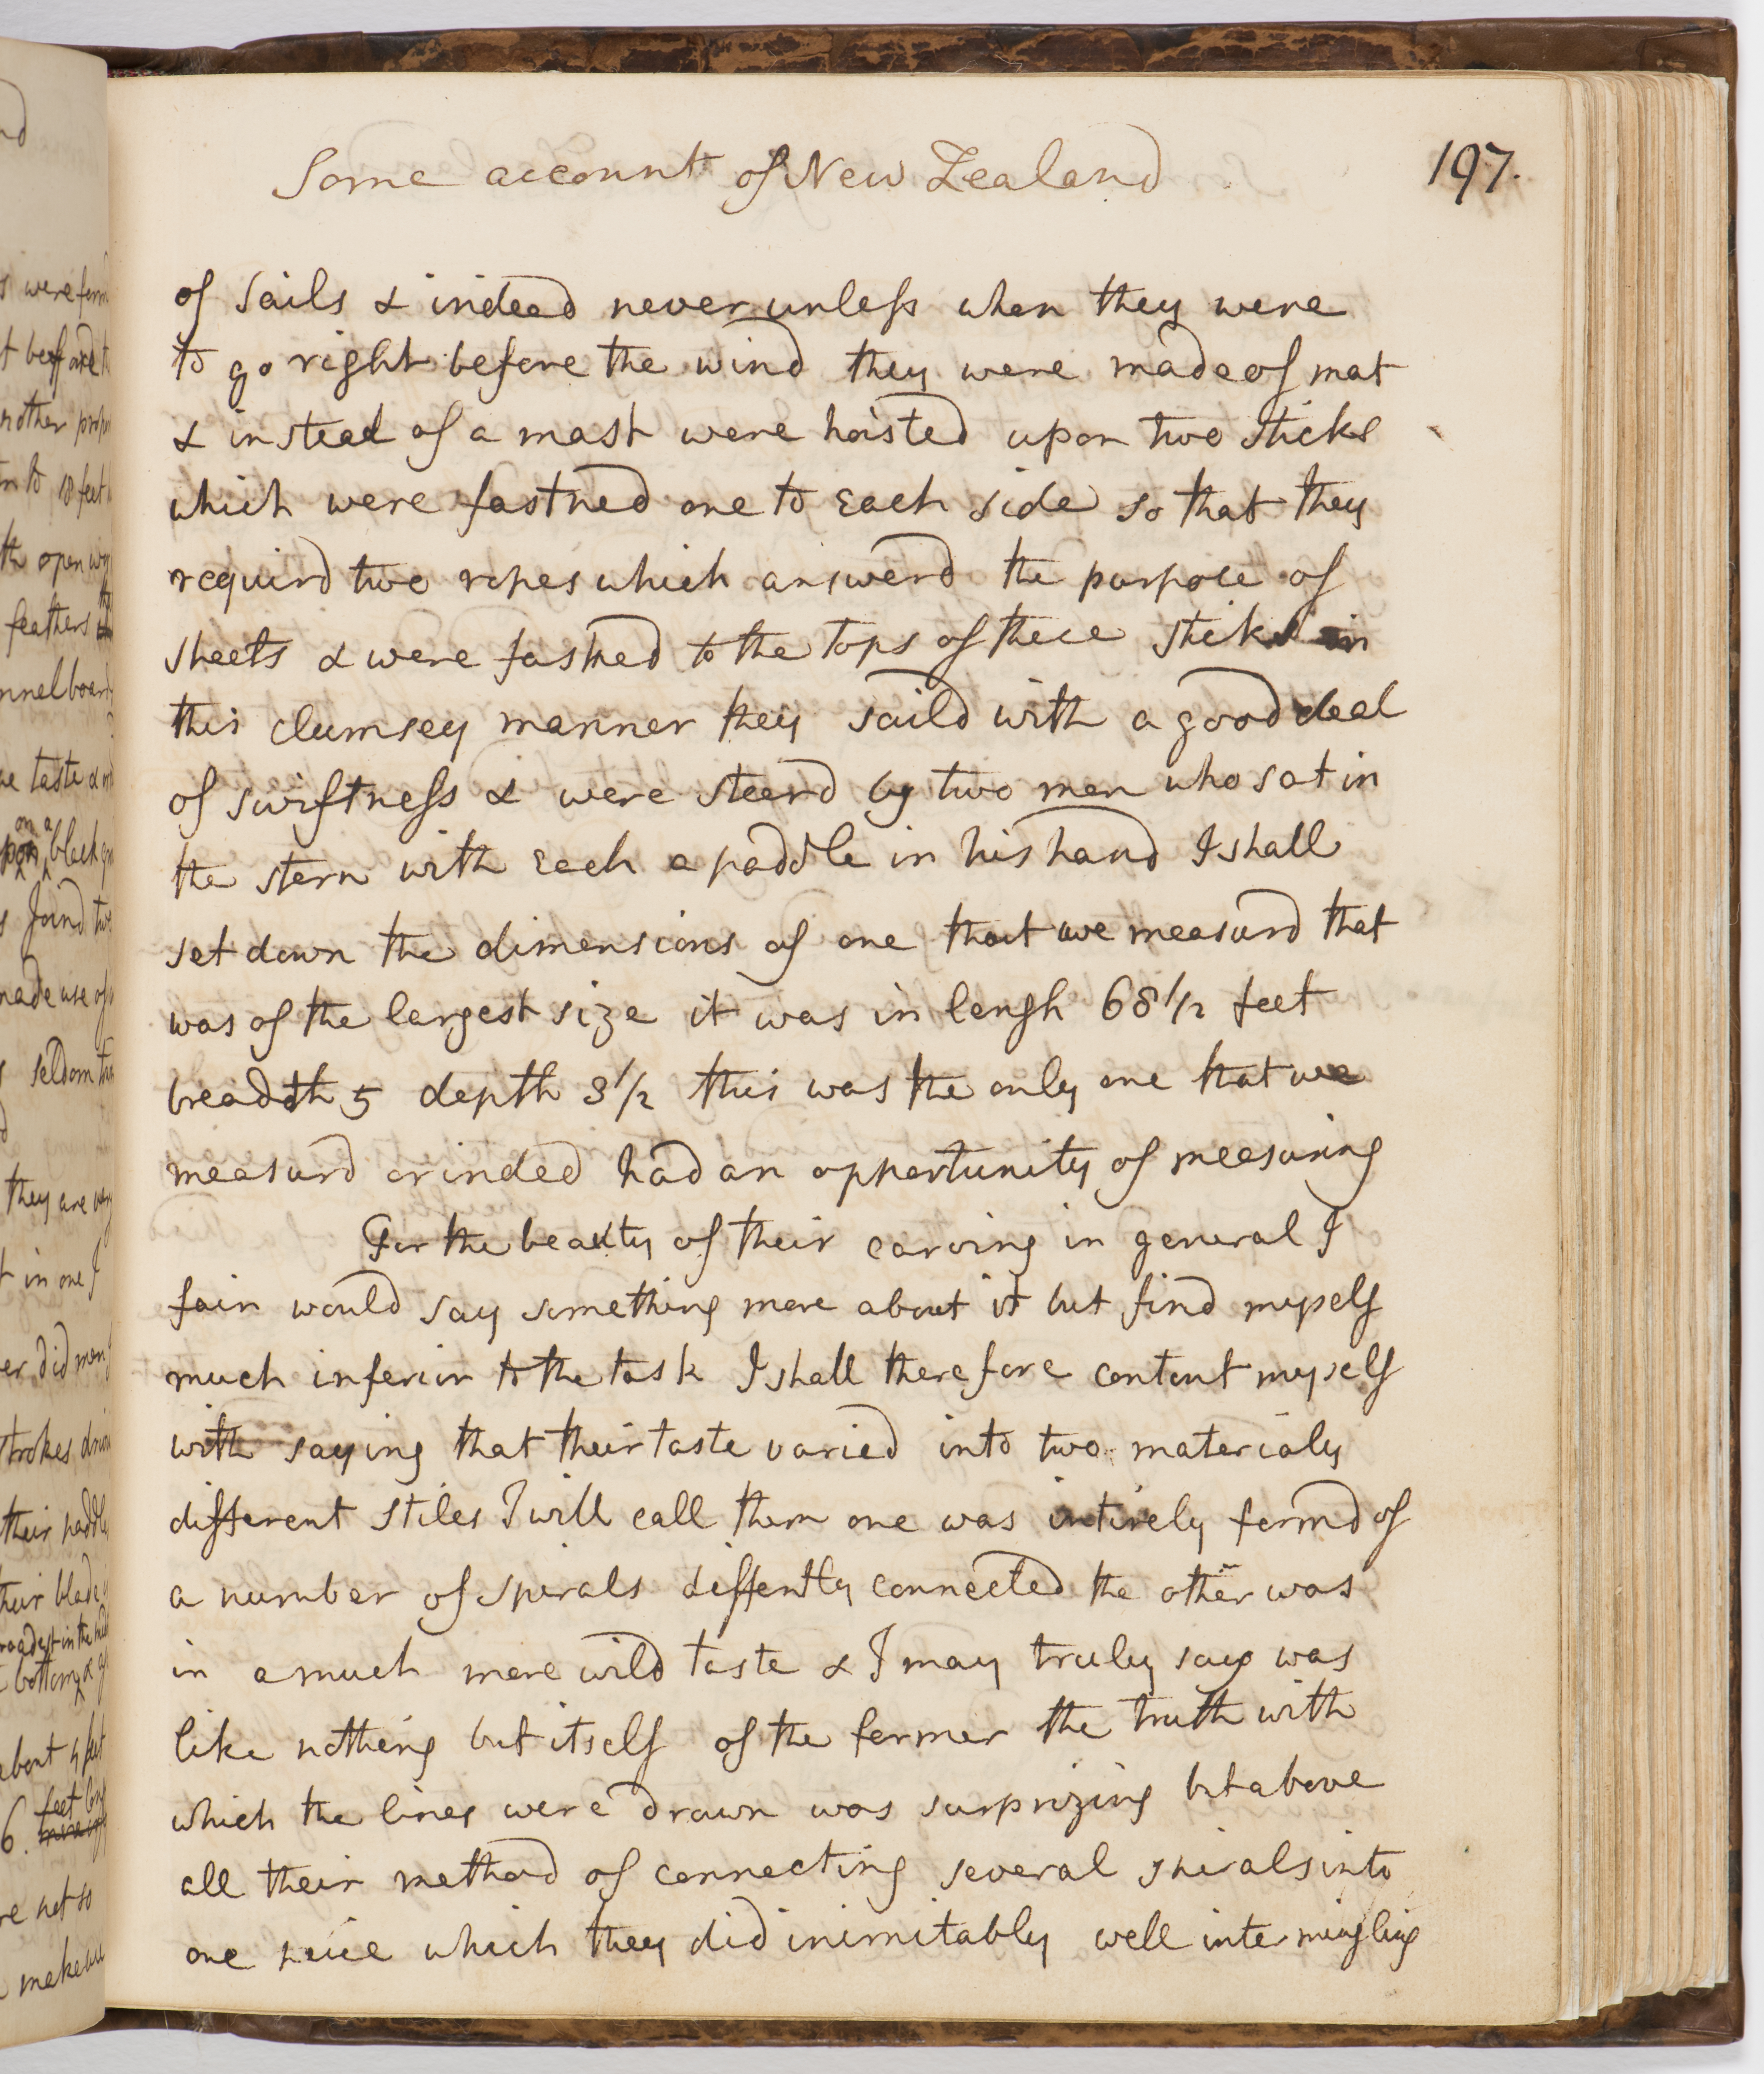 Some account of New Zealand
197.
of sails & indeed never unless when they were
to go right before the wind they were made of mat
& instead of a mast were hoisted upon two sticks
which were fastned one to each side so that they
requird two ropes which answerd the purpose of
sheets & were fastned to the tops of these sticks in
this clumsey manner they saild with a good deal
of swiftness & were steerd by two men who sat in
the stern with each a paddle in his hand I shall
set down the dimensions of one that we measurd that
was of the largest size it was in lengh 68 1/2 feet
breadth 5 depth 3 1/2 this was the only one that we
measurd or inded had an opportunity of measuring
For the beauty of their carving in general I
fain would say something more about it but find myself
much inferior to the task I shall therefore content myself
with saying that their taste varied into two materialy
different stiles I will call them one was intirely formd of
a number of spirals differntly connected the other was
in a much more wild taste & I may truly say was
like nothing but itself of the former the truth with
which the lines were drawn was surprizing but above
all their method of connecting several spirals into
one peice which they did inimitably well intermingling
s were
nother
to 18 feet
the open
feathers
taste &
on a
black
Joind
made use of
seldom
they are
t in one I
did
strokes
their
their blade
bottom &
about 4 feet
6 feet
re not so
make